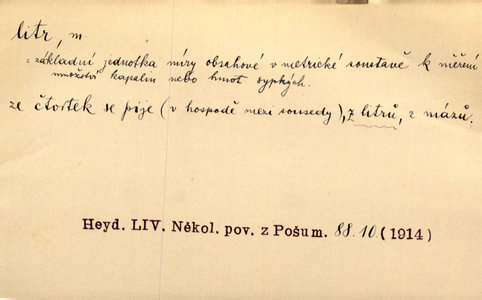 litr, m.
= základní jednotka míry obsahové v metrické soustavě k měření
množství kapalin nebo hmot sypkých.
ze čtvrtek se pije (v hospodě mezi sousedy), z litrů, z mázů.
Heyd. LIV. Někol. pov. z Pošum. 88.10 (1914)